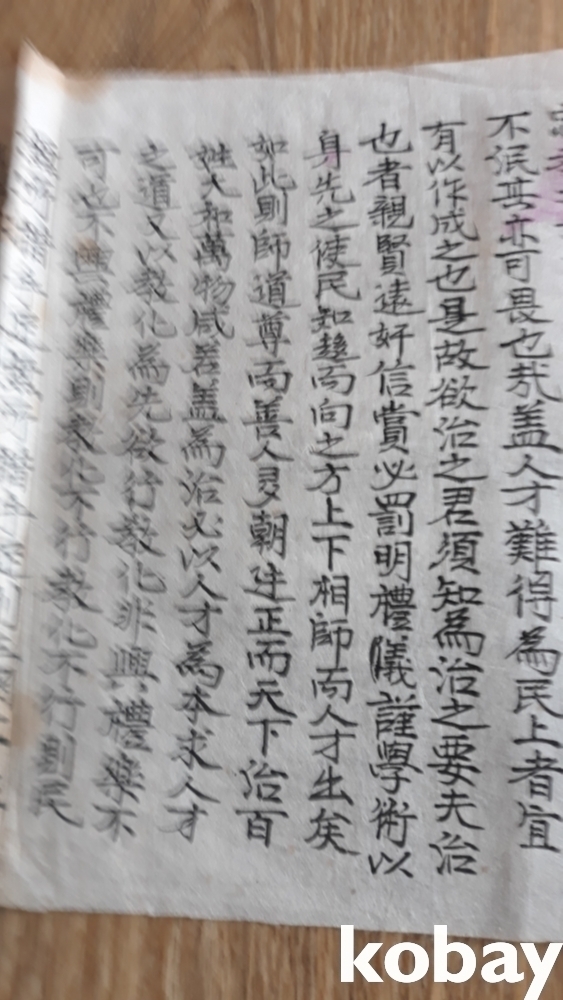 不泯其亦可畏也哉盖人才難得為民上者宜
有以作成之也是故欲治之君須知為治之要夫治
也者親賢遠奸信賞必罰明禮儀謹學術以
身先之使民知趍而向之方上下相師而人才出矣
如此則師道尊而善人多朝廷正而天下治百
姓大和萬物咸若盖為治必以人才為本求人才
之道又以教化為先欲行教化非興禮樂不
可也不興禮樂則教化不行教化不行則民
kobay